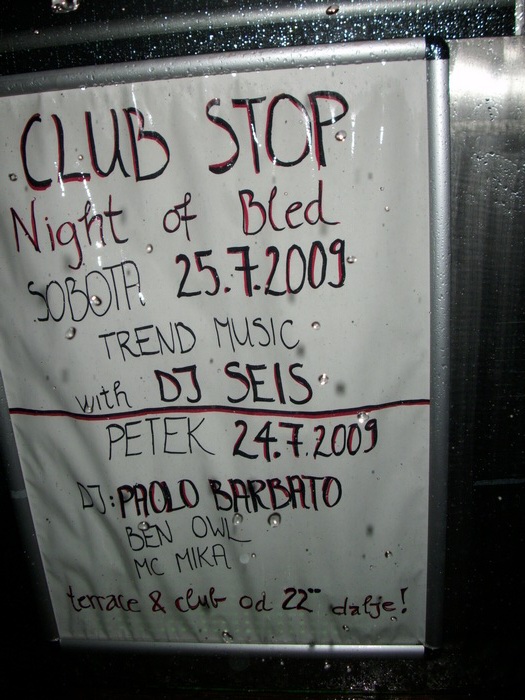 CLUB STOP
Night of Bled
SOBOTA 25.7.2009
TREND MUSIC
with DJ SEIS
PETEK 24.7.2009
DJ: PAOLO BARBATO
BEN OWL
MC MIKA
terrace & club od 22°° dalje!